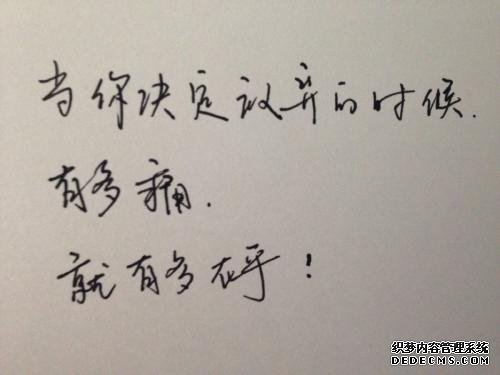 当你决定放弃的时候.
有多痛.
就有多在乎！
织梦内容管理系统
DEDECMS.COM